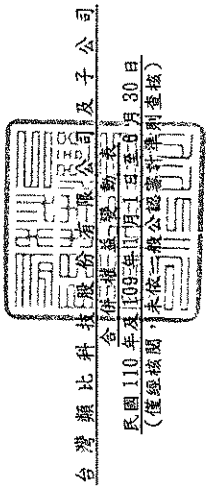 台灣類比科技股份有限公司及子公司
合併權益變動表
民國110年及109年1月1日至6月30日
(僅經核閱,未依一般公認審計準則查核)